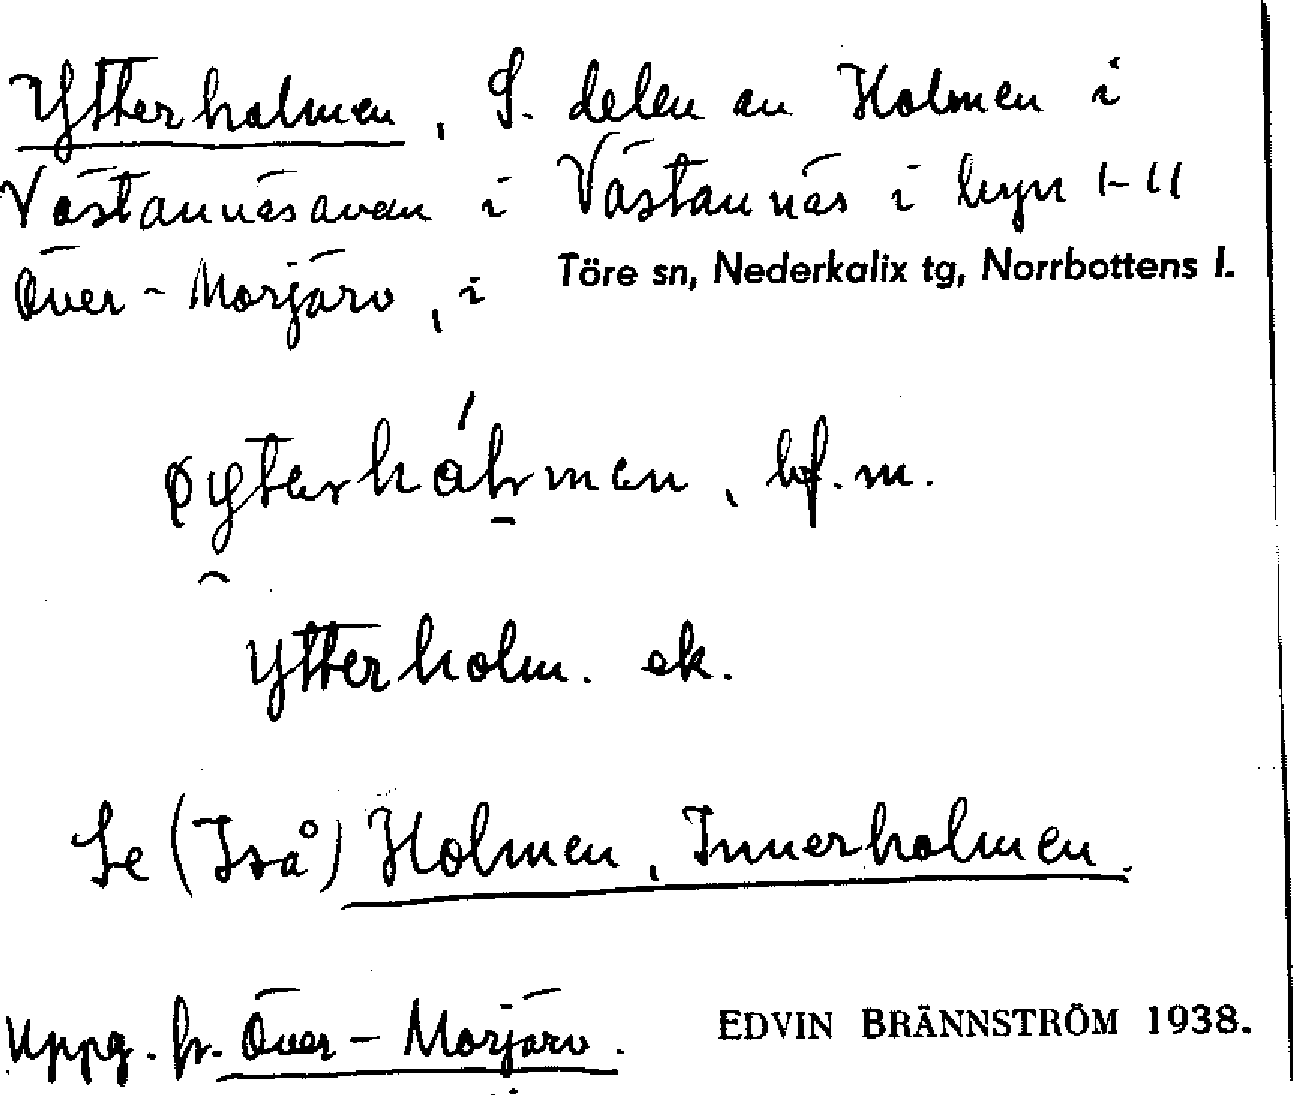 Ytterholmen, S. delen av Holmen i
Västannäsavan i Västannäs i byn 1-11
Över-Morjärv, i Töre sn, Nederkalix tg, Norrbottens l.
bf. m.
Ytterholm. ek.
Se (Två) Holmen, Innerholmen.
Uppg. fr. Över-Morjärv. EDVIN BRÄNNSTRÖM 1938.